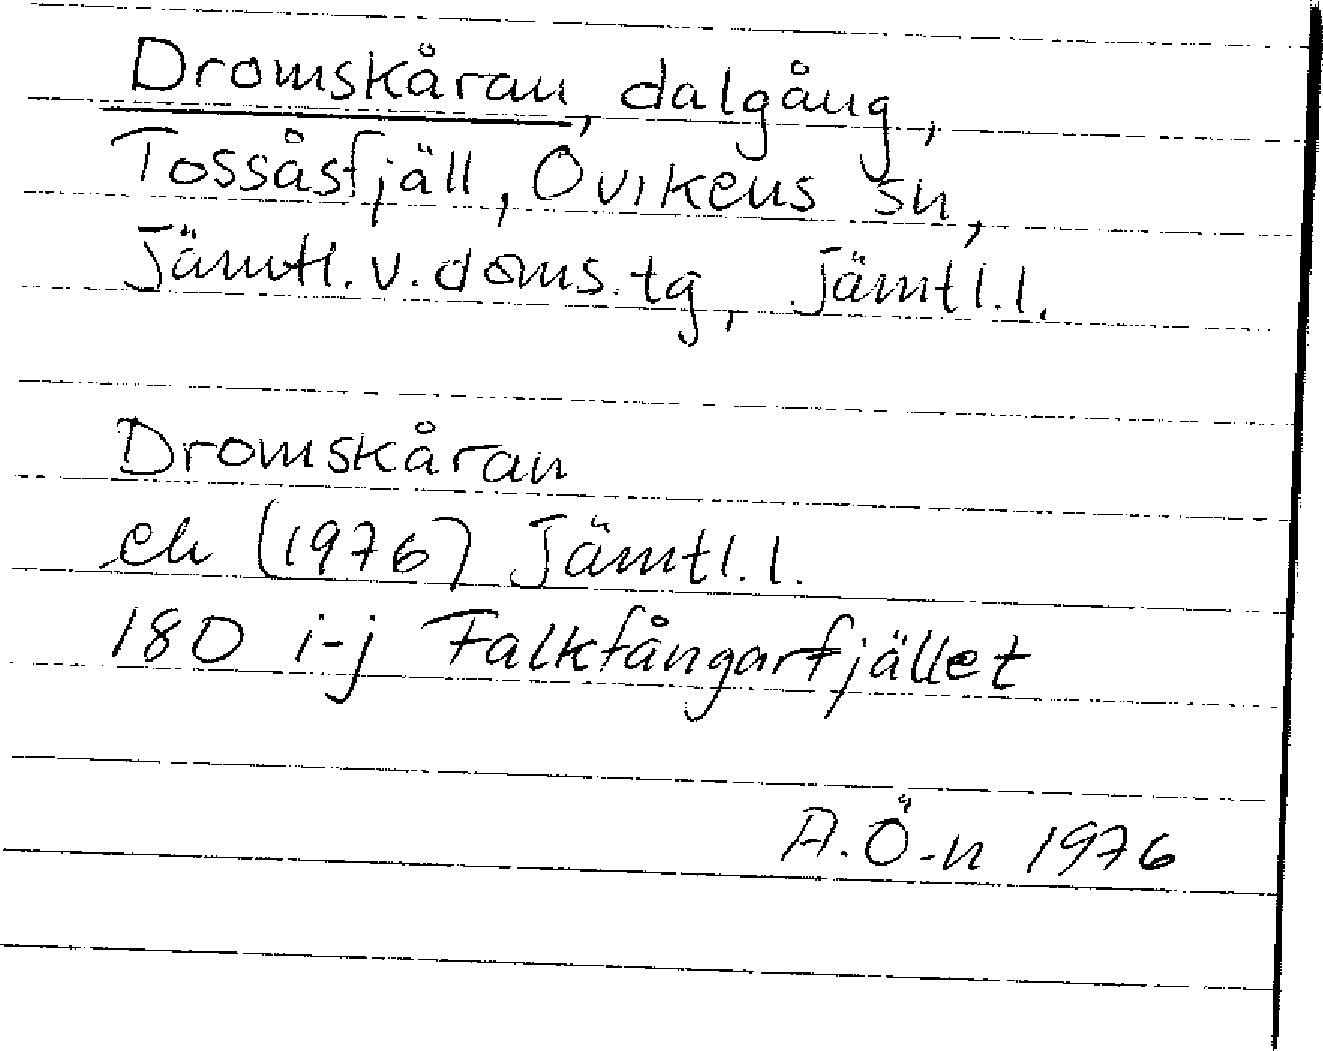 Dromskåran, dalgång,
Tossåsfjäll, Ovikens sn,
Jämtl. v. doms. tg, Jämtl. l.
Dromskåran
ek (1976) Jämtl. l.
180 i-j Falkfångarfjället
A. Ö-n 1976